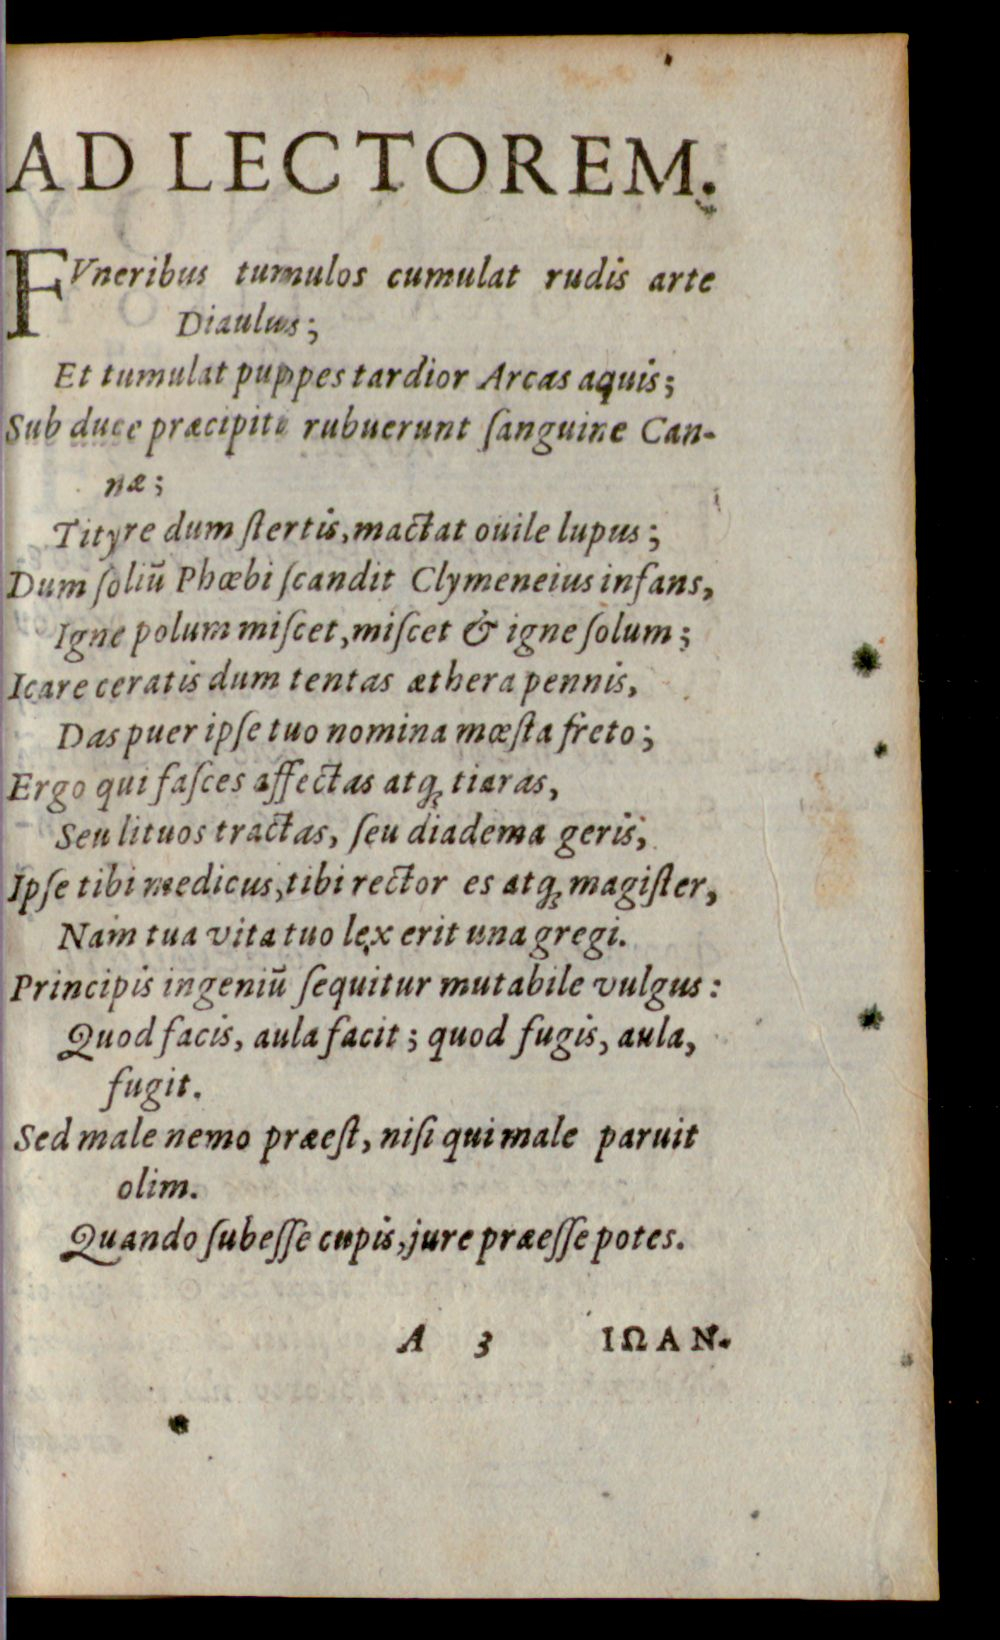 AD LECTOREM.
FVneribus tumulos cumulat rudis arte
Diaulus;
Et tumulat puppes tardior Arcas aquis;
Sub duce præcipite rubuerunt ſanguine Can-
næ;
Tityre dum ſtertis, mactat ovile lupus;
Dum ſoliũ Phœbi ſcandit Clymeneius infans,
Igne polum miſcet, miſcet & igne ſolum;
Icare ceratis dum tentas æthera pennis,
Das puer ipſe tuo nomina mœſta freto;
Ergo qui faſces affectas atq; tiaras,
Seu lituos tractas, ſeu diadema geris;
Ipſe tibi medicus, tibi rector es atq; magiſter,
Nam tua vita tuo lex erit una gregi.
Principis ingeniũ ſequitur mutabile vulgus:
Quod facis, aula facit; quod fugis, aula,
fugit.
Sed male nemo præeſt, niſi qui male paruit
olim.
Quando ſubeſſe cupis, jure præeſſe potes.
A 3 ΙΩΑΝ.